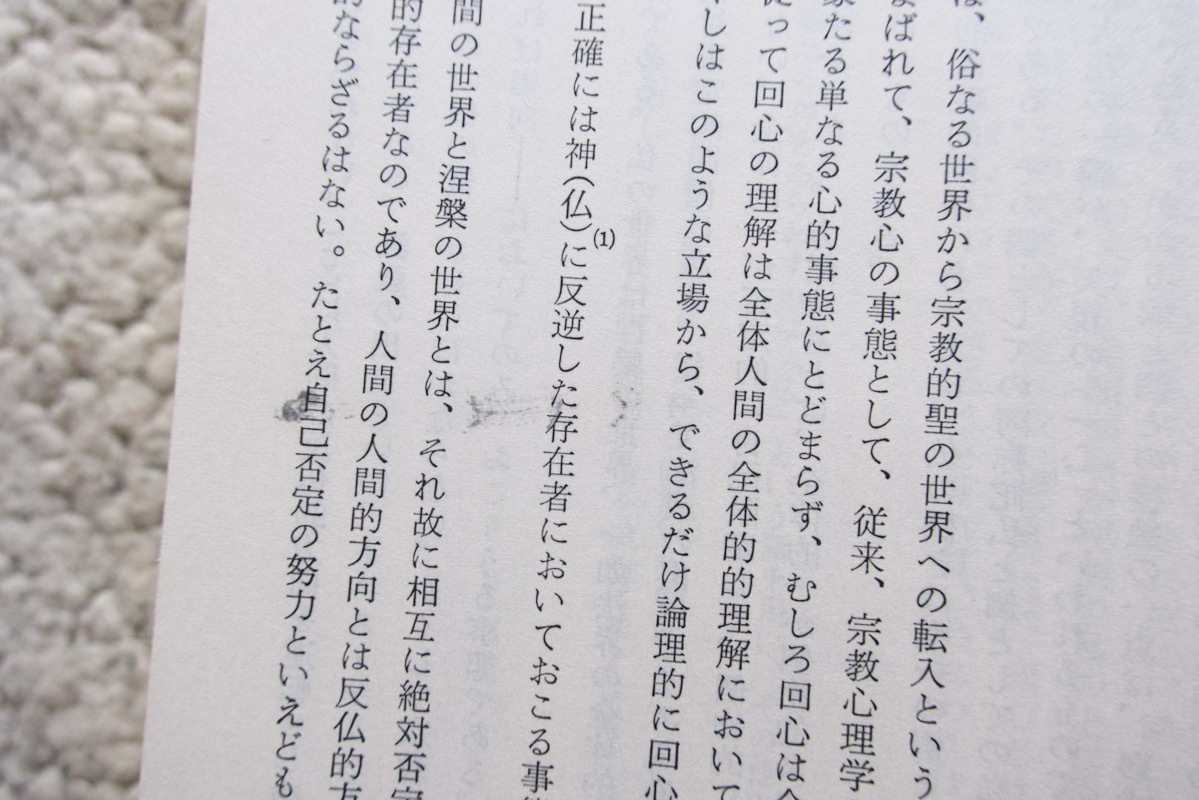 は、俗なる世界から宗教的聖の世界への転入という
よばれて、宗教心の事態として、従来、宗教心理学
象たる単なる心的事態にとどまらず、むしろ回心は全
従って回心の理解は全体人間の全体的的理解において
しはこのような立場から、できるだけ論理的に回心
正確には神(仏)(1)に反逆した存在者においておこる事
間の世界と涅槃の世界とは、それ故に相互に絶対否定
的存在者なのであり、人間の人間的方向とは反仏的方
的ならざるはない。たとえ自己否定の努力といえども